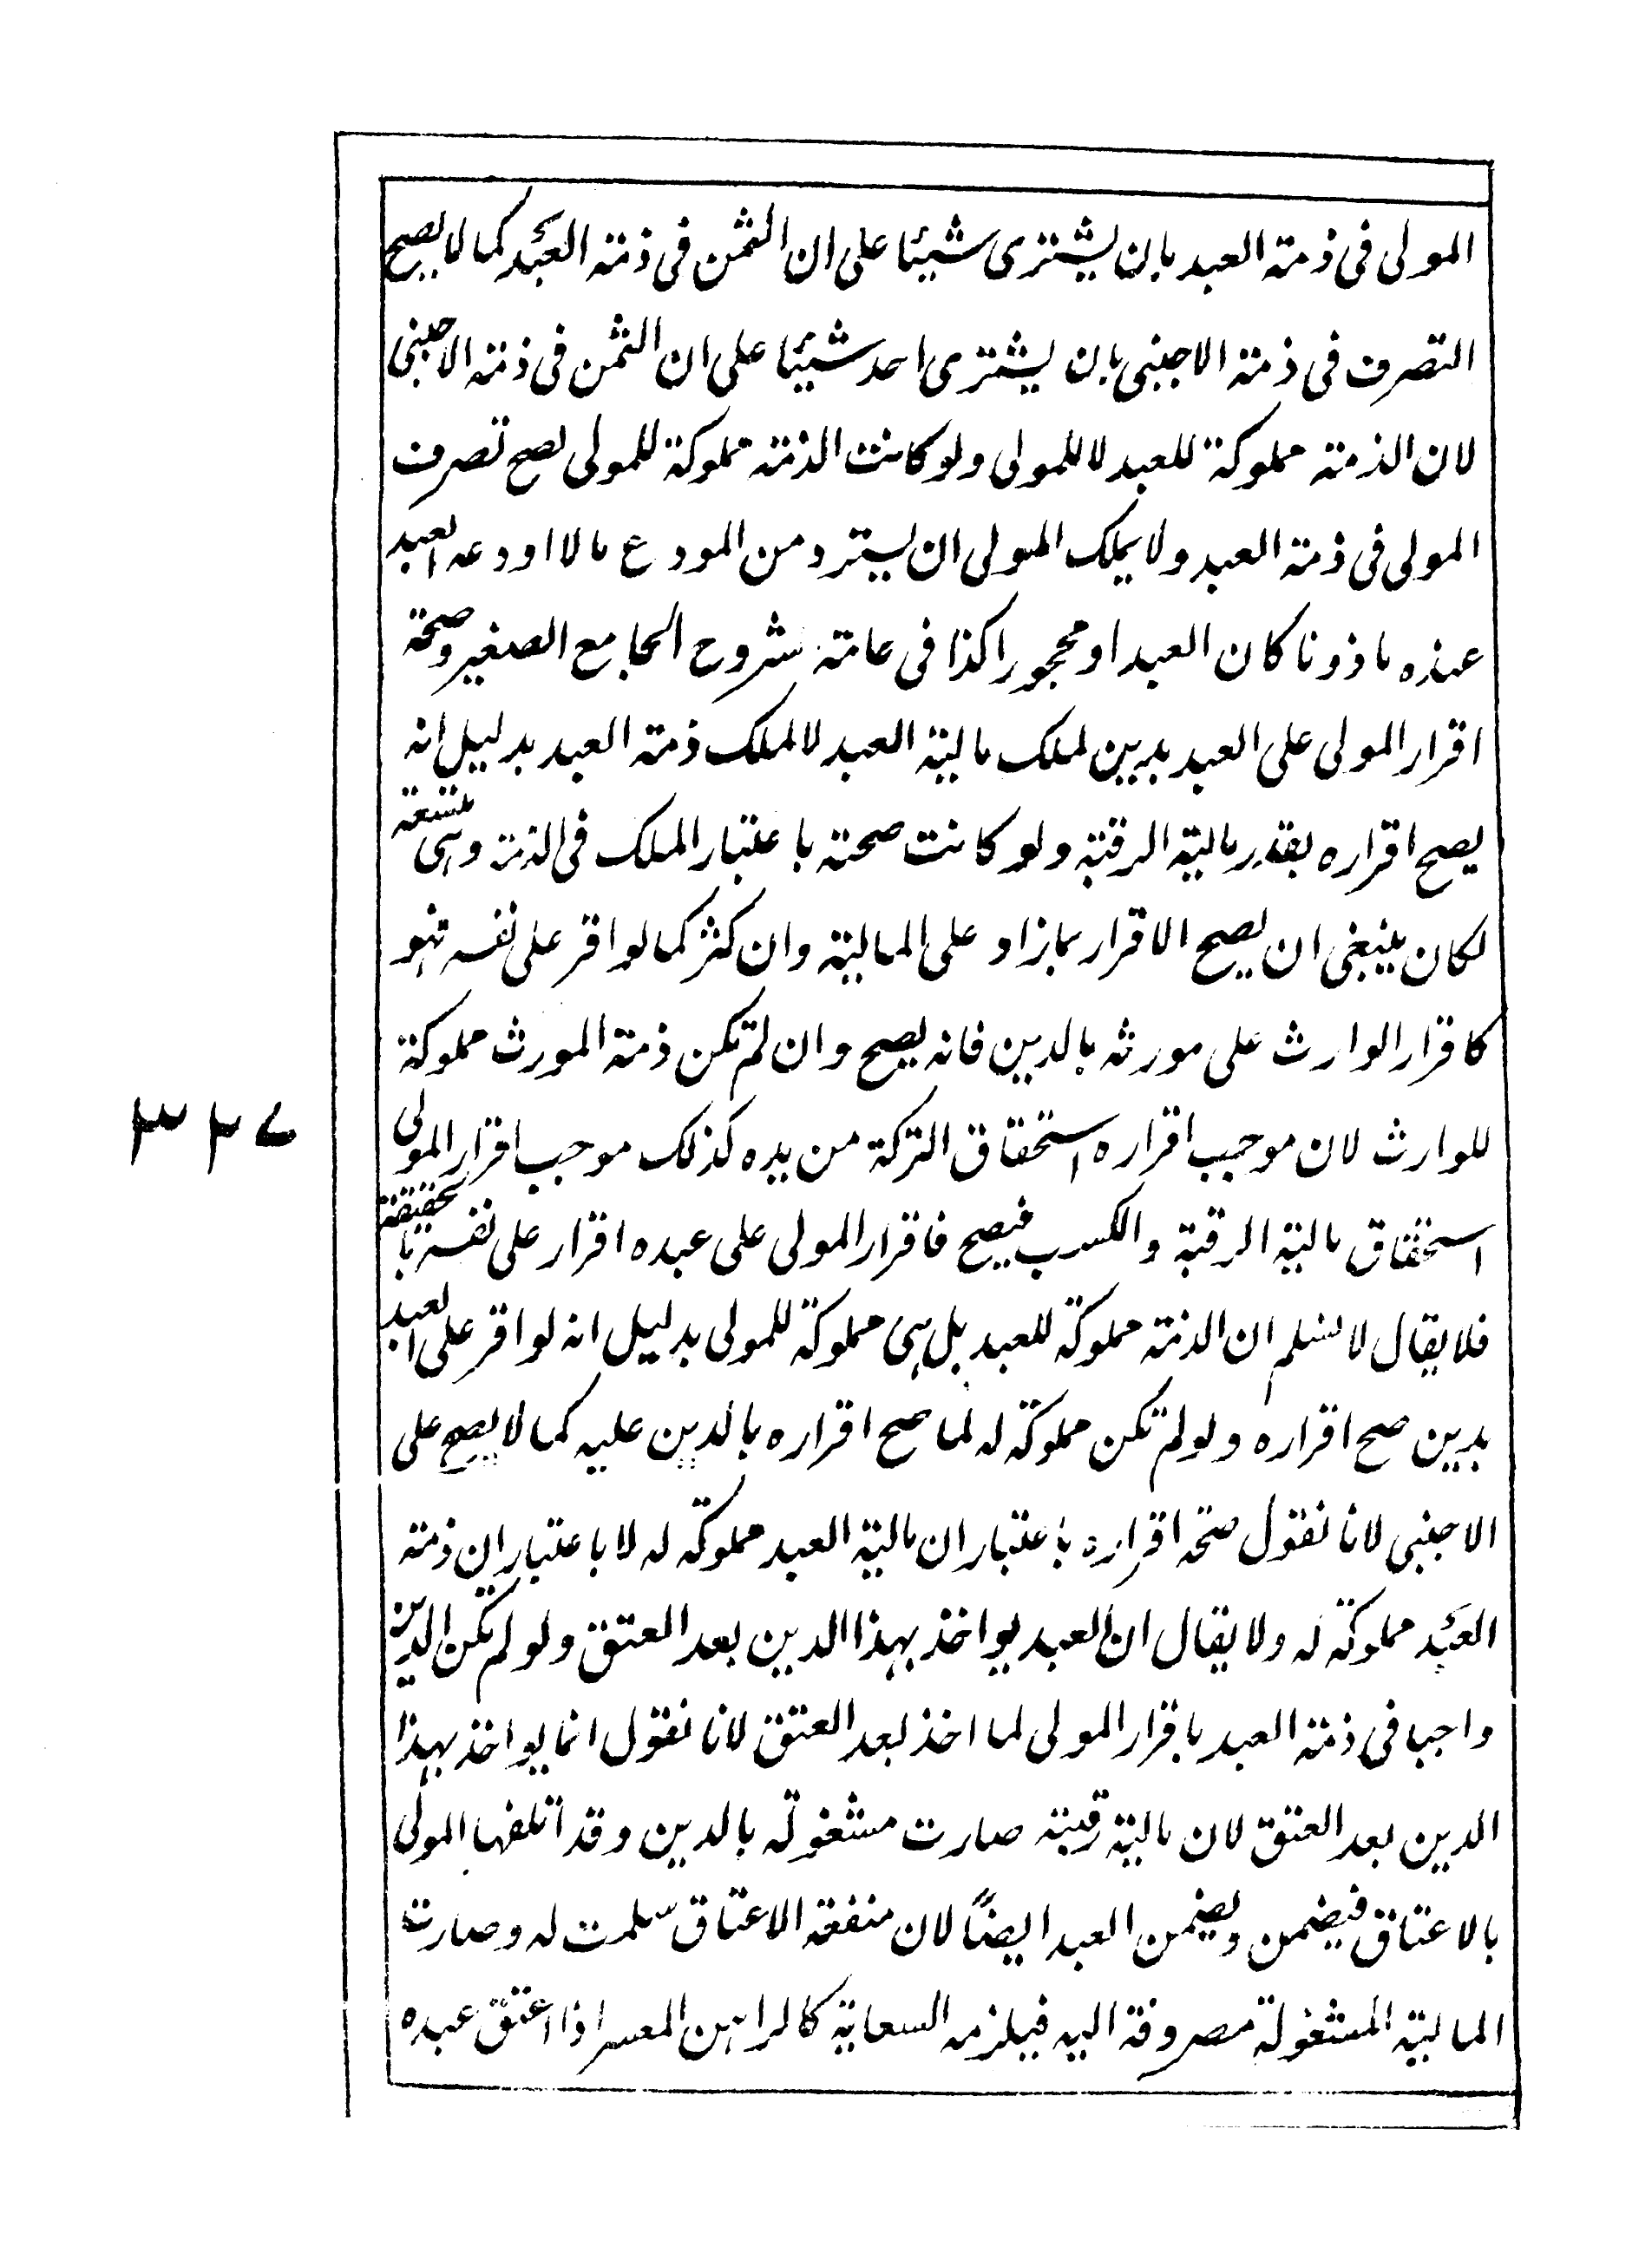 المولى فى ذمة العبد بان يشترى شيئا على ان الثمن فى ذمة العبد كما لا يصح
التصرف فى ذمة الاجنبى بان يشترى احد شيئا على ان الثمن فى ذمة الاجنبى
لان الذمة مملوكة للعبد لا للمولى ولو كانت الذمة مملوكة للمولى لصح تصرف
المولى فى ذمة العبد ولا يملك المولى ان يسترد من المودع مالا اودعه العبد
عنده ماذونا كان العبد او محجورا كذا فى عامة شروح الجامع الصغير وصحة
اقرار المولى على العبد بدين لملك مالية العبد لا لملك ذمة العبد بدليل انه
يصح اقراره بقدر مالية الرقبة ولو كانت صحته باعتبار الملك فى الذمة وهى متسعة
لكان ينبغى ان يصح الاقرار بما زاد على المالية وان كثر كما لو اقر على نفسه فهو
كاقرار الوارث على مورثه بالدين فانه يصح وان لم تكن ذمة المورث مملوكة
للوارث لان موجب اقراره استحقاق التركة من يده كذلك موجب اقرار المولى
استحقاق مالية الرقبة والكسب فيصح فاقرار المولى على عبده اقرار على نفسه بالحقيقة
فلا يقال لا نسلم ان الذمة مملوكة للعبد بل هى مملوكة للمولى بدليل انه لو اقر على العبد
بدين صح اقراره ولو لم تكن مملوكة له لما صح اقراره بالدين عليه كما لا يصح على
الاجنبى لانا نقول صحة اقراره باعتبار ان مالية العبد مملوكة له لا باعتبار ان ذمة
العبد مملوكة له ولا يقال ان العبد يواخذ بهذا الدين بعد العتق ولو لم تكن الدين
واجبا فى ذمة العبد باقرار المولى لما اخذ بعد العتق لانا نقول انما يواخذ بهذا
الدين بعد العتق لان مالية رقبته صارت مشغولة بالدين وقد اتلفها المولى
بالاعتاق فيضمن ويضمن العبد ايضاً لان منفعة الاعتاق سلمت له وصارت
المالية المشغولة مصروفة اليه فيلزمه السعاية كالراهن المعسر اذا اعتق عبده